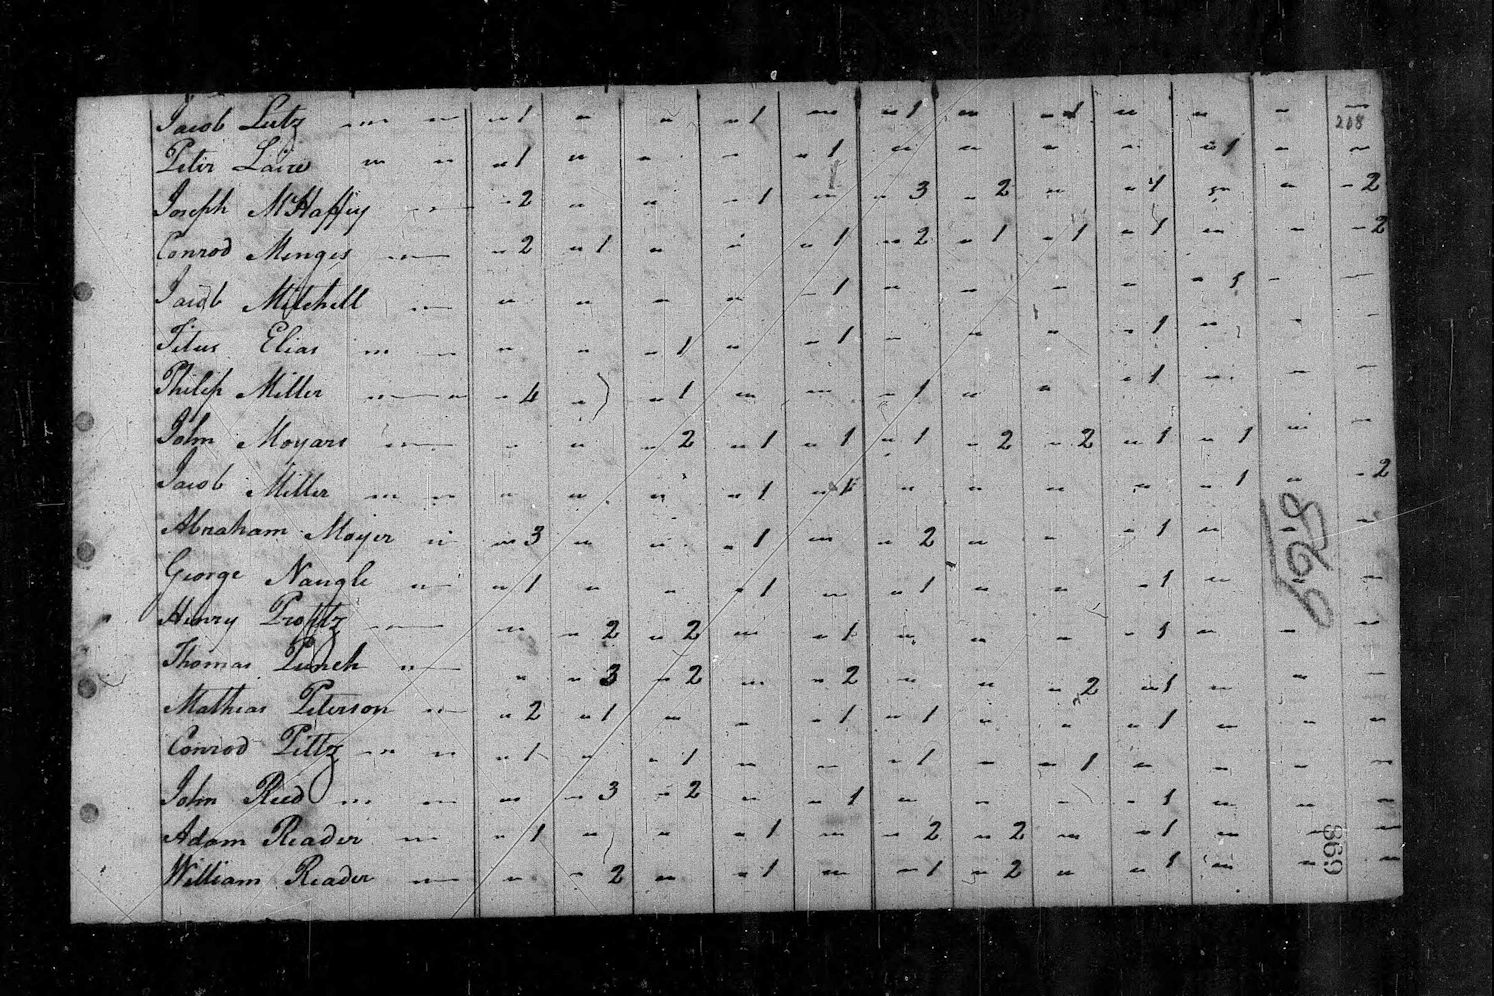 208
Jacob Lutz " " " 1 " " " 1 " " 1 " " 1 " " " —
Peter Laire " " " 1 " " " " 1 " " " " " 1 " "
Joseph McHaffey " 2 " " " 1 " " 3 " 2 " " 1 " " " 2
Conrod Menges " 2 " 1 " " " 1 " 2 " 1 " 1 " 1 " " " 2
Jacob Mitchell " " " " " " 1 " " " " " 1 " —
Titus Elias " " " " " 1 " " 1 " " " " 1 " " "
Philip Miller " " " 4 " " 1 " " " 1 " " " 1 " " "
John Moyars " " " " 2 " 1 " 1 " 1 " 2 " 2 " 1 " 1 " "
Jacob Miller " " " " " " 1 " 1 " " " " " 1 " " 2
Abraham Moyer " " 3 " " " 1 " " 2 " " " 1 " " "
George Naugle " " 1 " " " 1 " " 1 " " " 1 " " "
Henry " " " 2 " 2 " " 1 " " " " 1 " " "
Thomas Punch " " " 3 " 2 " " 2 " " " 2 " 1 " " "
Mathias Peterson " " 2 " 1 " " " 1 " 1 " " " 1 " " "
Conrod Pittz " " " 1 " " 1 " " " 1 " " 1 " " " "
John Reed " " " " 3 " 2 " " 1 " " " " 1 " " "
Adam Reader " " 1 " " " 1 " " 2 " 2 " " 1 " " "
William Reader " " " 2 " " 1 " " 1 " 2 " " 1 " " "
869
869